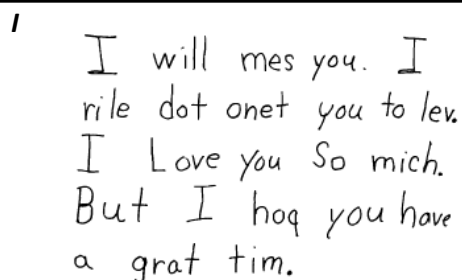 I
I will mes you. I
rile dot onet you to lev.
I Love you So mich.
But I hoq you have
a grat tim.